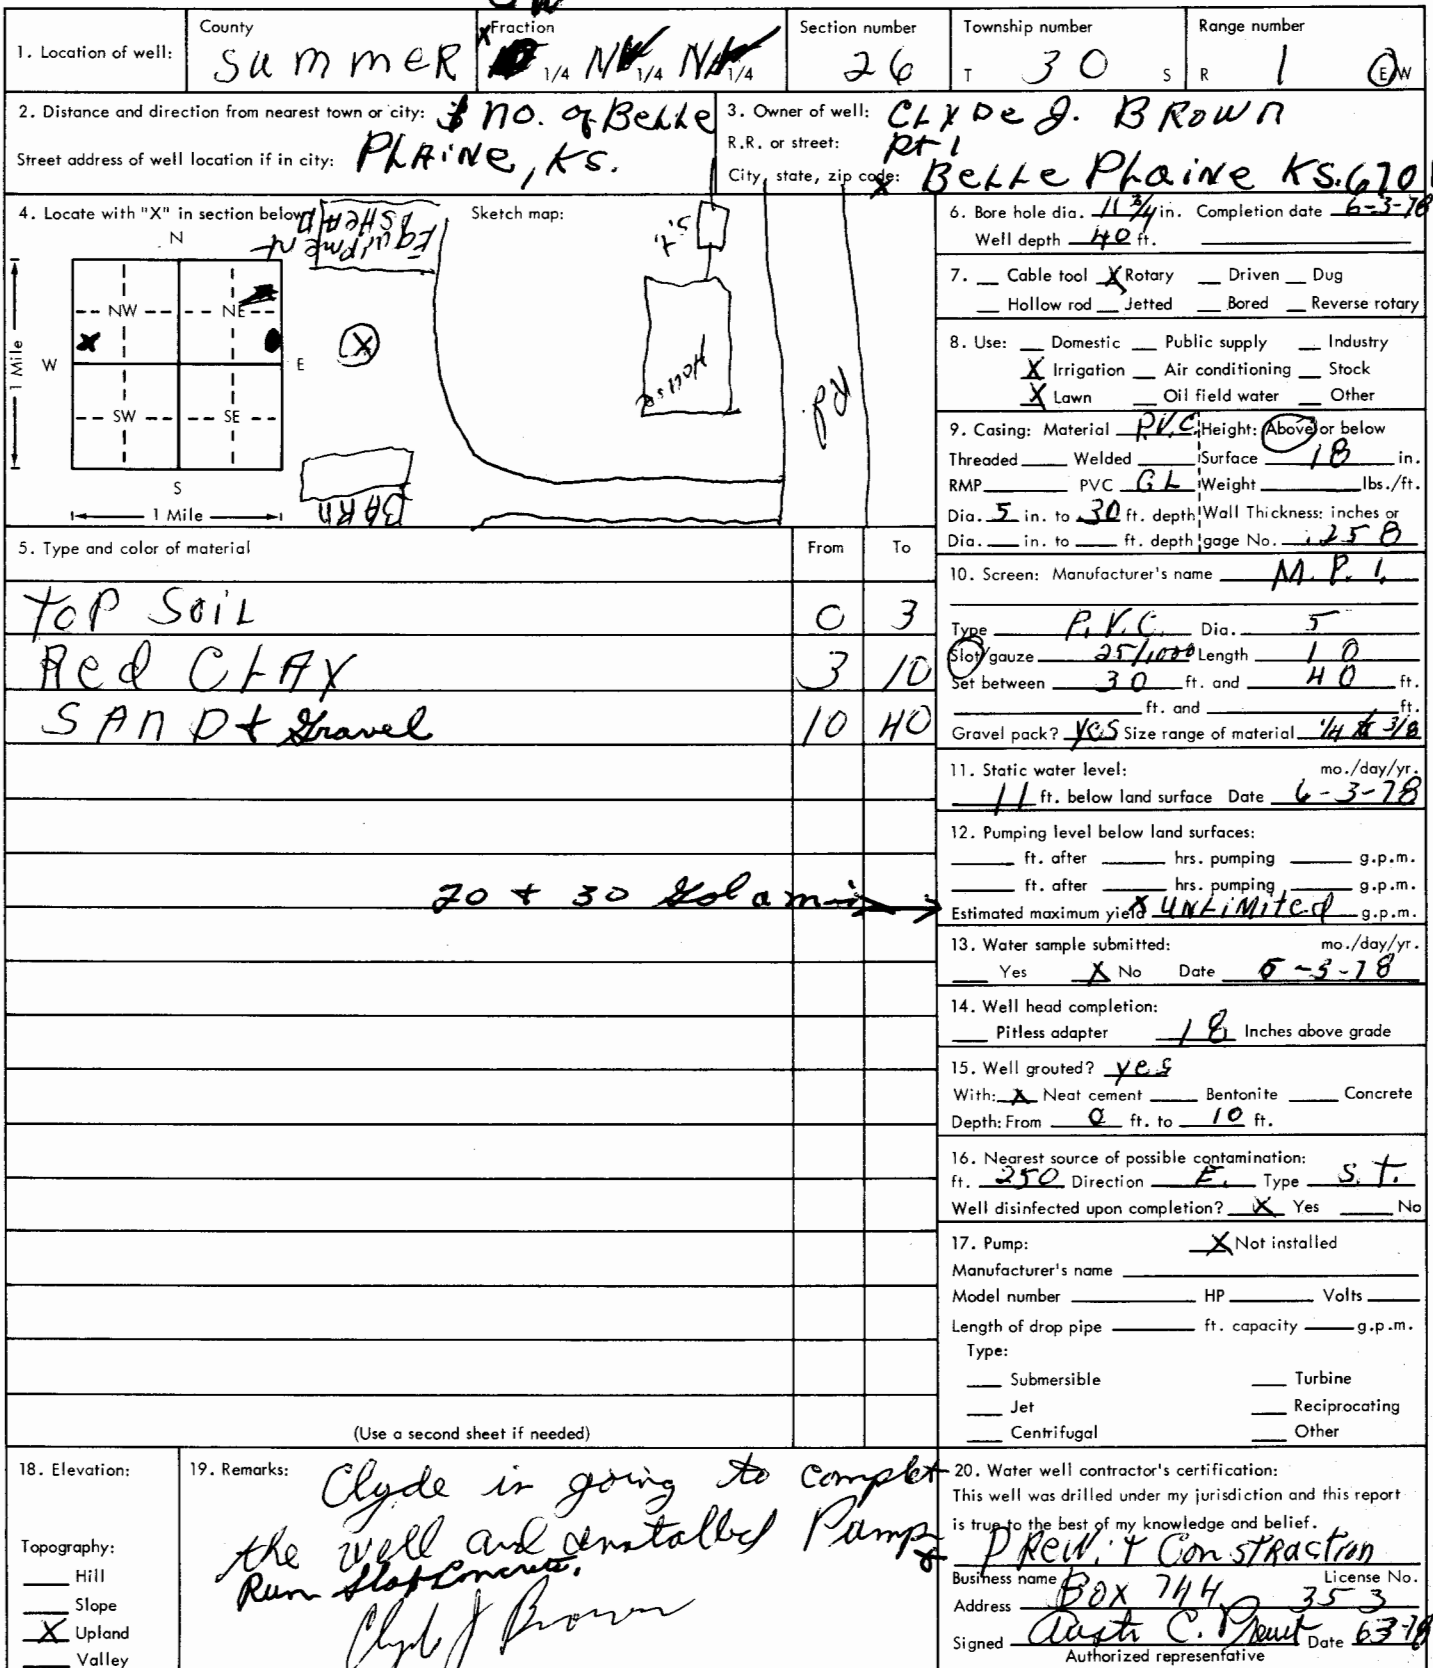 1. Location of well:
County
Summer
Fraction
1/4 1/4 1/4
Section number
26
Township number
T 30 S
Range number
R 1 E/W
2. Distance and direction from nearest town or city: no. of Belle
Street address of well location if in city: Plaine, KS.
3. Owner of well: Clyde J. Brown
R.R. or street: Rt 1
City, state, zip code: Belle Plaine KS. 670
4. Locate with "X" in section below
Sketch map:
N
NW NE
W E
SW SE
S
1 Mile
1 Mile
Equipment
Shead
X
S.T.
House
Rd
Barn
5. Type and color of material From To
Top Soil 0 3
Red Clay 3 10
Sand + Gravel 10 40
20 + 30 Gol a min
(Use a second sheet if needed)
6. Bore hole dia. 11 3/4 in. Completion date 6-3-78
Well depth 40 ft.
7. Cable tool X Rotary Driven Dug
Hollow rod Jetted Bored Reverse rotary
8. Use: Domestic Public supply Industry
X Irrigation Air conditioning Stock
X Lawn Oil field water Other
9. Casing: Material P.V.C. Height: Above or below
Threaded Welded Surface 18 in.
RMP PVC GL Weight lbs./ft.
Dia. 5 in. to 30 ft. depth Wall Thickness: inches or
Dia. in. to ft. depth gage No. .258
10. Screen: Manufacturer's name M.P.I.
Type P.V.C. Dia. 5
Slot/gauze 25/1000 Length 10
Set between 30 ft. and 40 ft.
ft. and ft.
Gravel pack? Yes Size range of material 1/4 3/8
11. Static water level: mo./day/yr.
11 ft. below land surface Date 6-3-78
12. Pumping level below land surfaces:
ft. after hrs. pumping g.p.m.
ft. after hrs. pumping g.p.m.
Estimated maximum yield Unlimited g.p.m.
13. Water sample submitted: mo./day/yr.
Yes X No Date 6-3-78
14. Well head completion:
Pitless adapter 18 Inches above grade
15. Well grouted? yes
With: X Neat cement Bentonite Concrete
Depth: From 0 ft. to 10 ft.
16. Nearest source of possible contamination:
ft. 250 Direction E. Type S.T.
Well disinfected upon completion? X Yes No
17. Pump: X Not installed
Manufacturer's name
Model number HP Volts
Length of drop pipe ft. capacity g.p.m.
Type:
Submersible Turbine
Jet Reciprocating
Centrifugal Other
18. Elevation:
Topography:
Hill
Slope
X Upland
Valley
19. Remarks: Clyde is going to complet
the well and installed Pump
Run Slab Concrete.
Clyde J Brown
20. Water well contractor's certification:
This well was drilled under my jurisdiction and this report
is true to the best of my knowledge and belief.
Prewitt Construction
Business name License No.
Address Box 744 353
Signed C. Prewit Date 6-3-78
Authorized representative